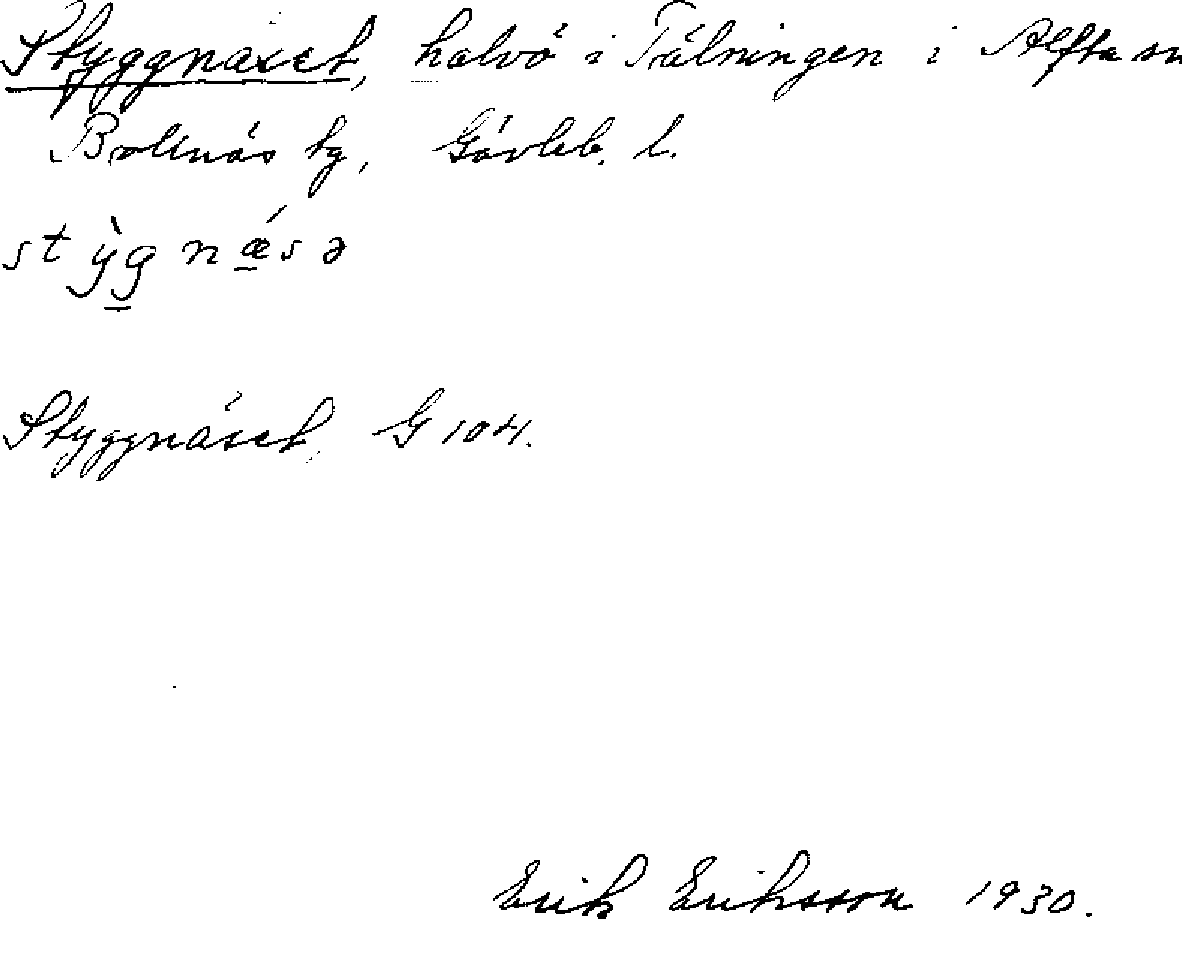 Styggnäset, halvö i Tälningen i Alfta sn
Bollnäs tg, Gävleb. l.
stỳg̲nǽ̲sə
Styggnäset, G 104.
Erik Eriksson 1930.